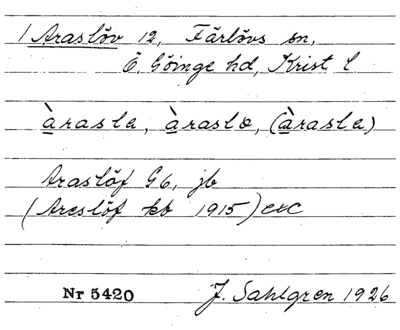 1 Araslöv 12, Färlövs sn,
Ö. Göinge hd, Krist l.
àrasla, àraslo, (àrasla)
Araslöf G6, jb
(Areslöf kb 1915) exc
Nr 5420
J. Sahlgren 1926